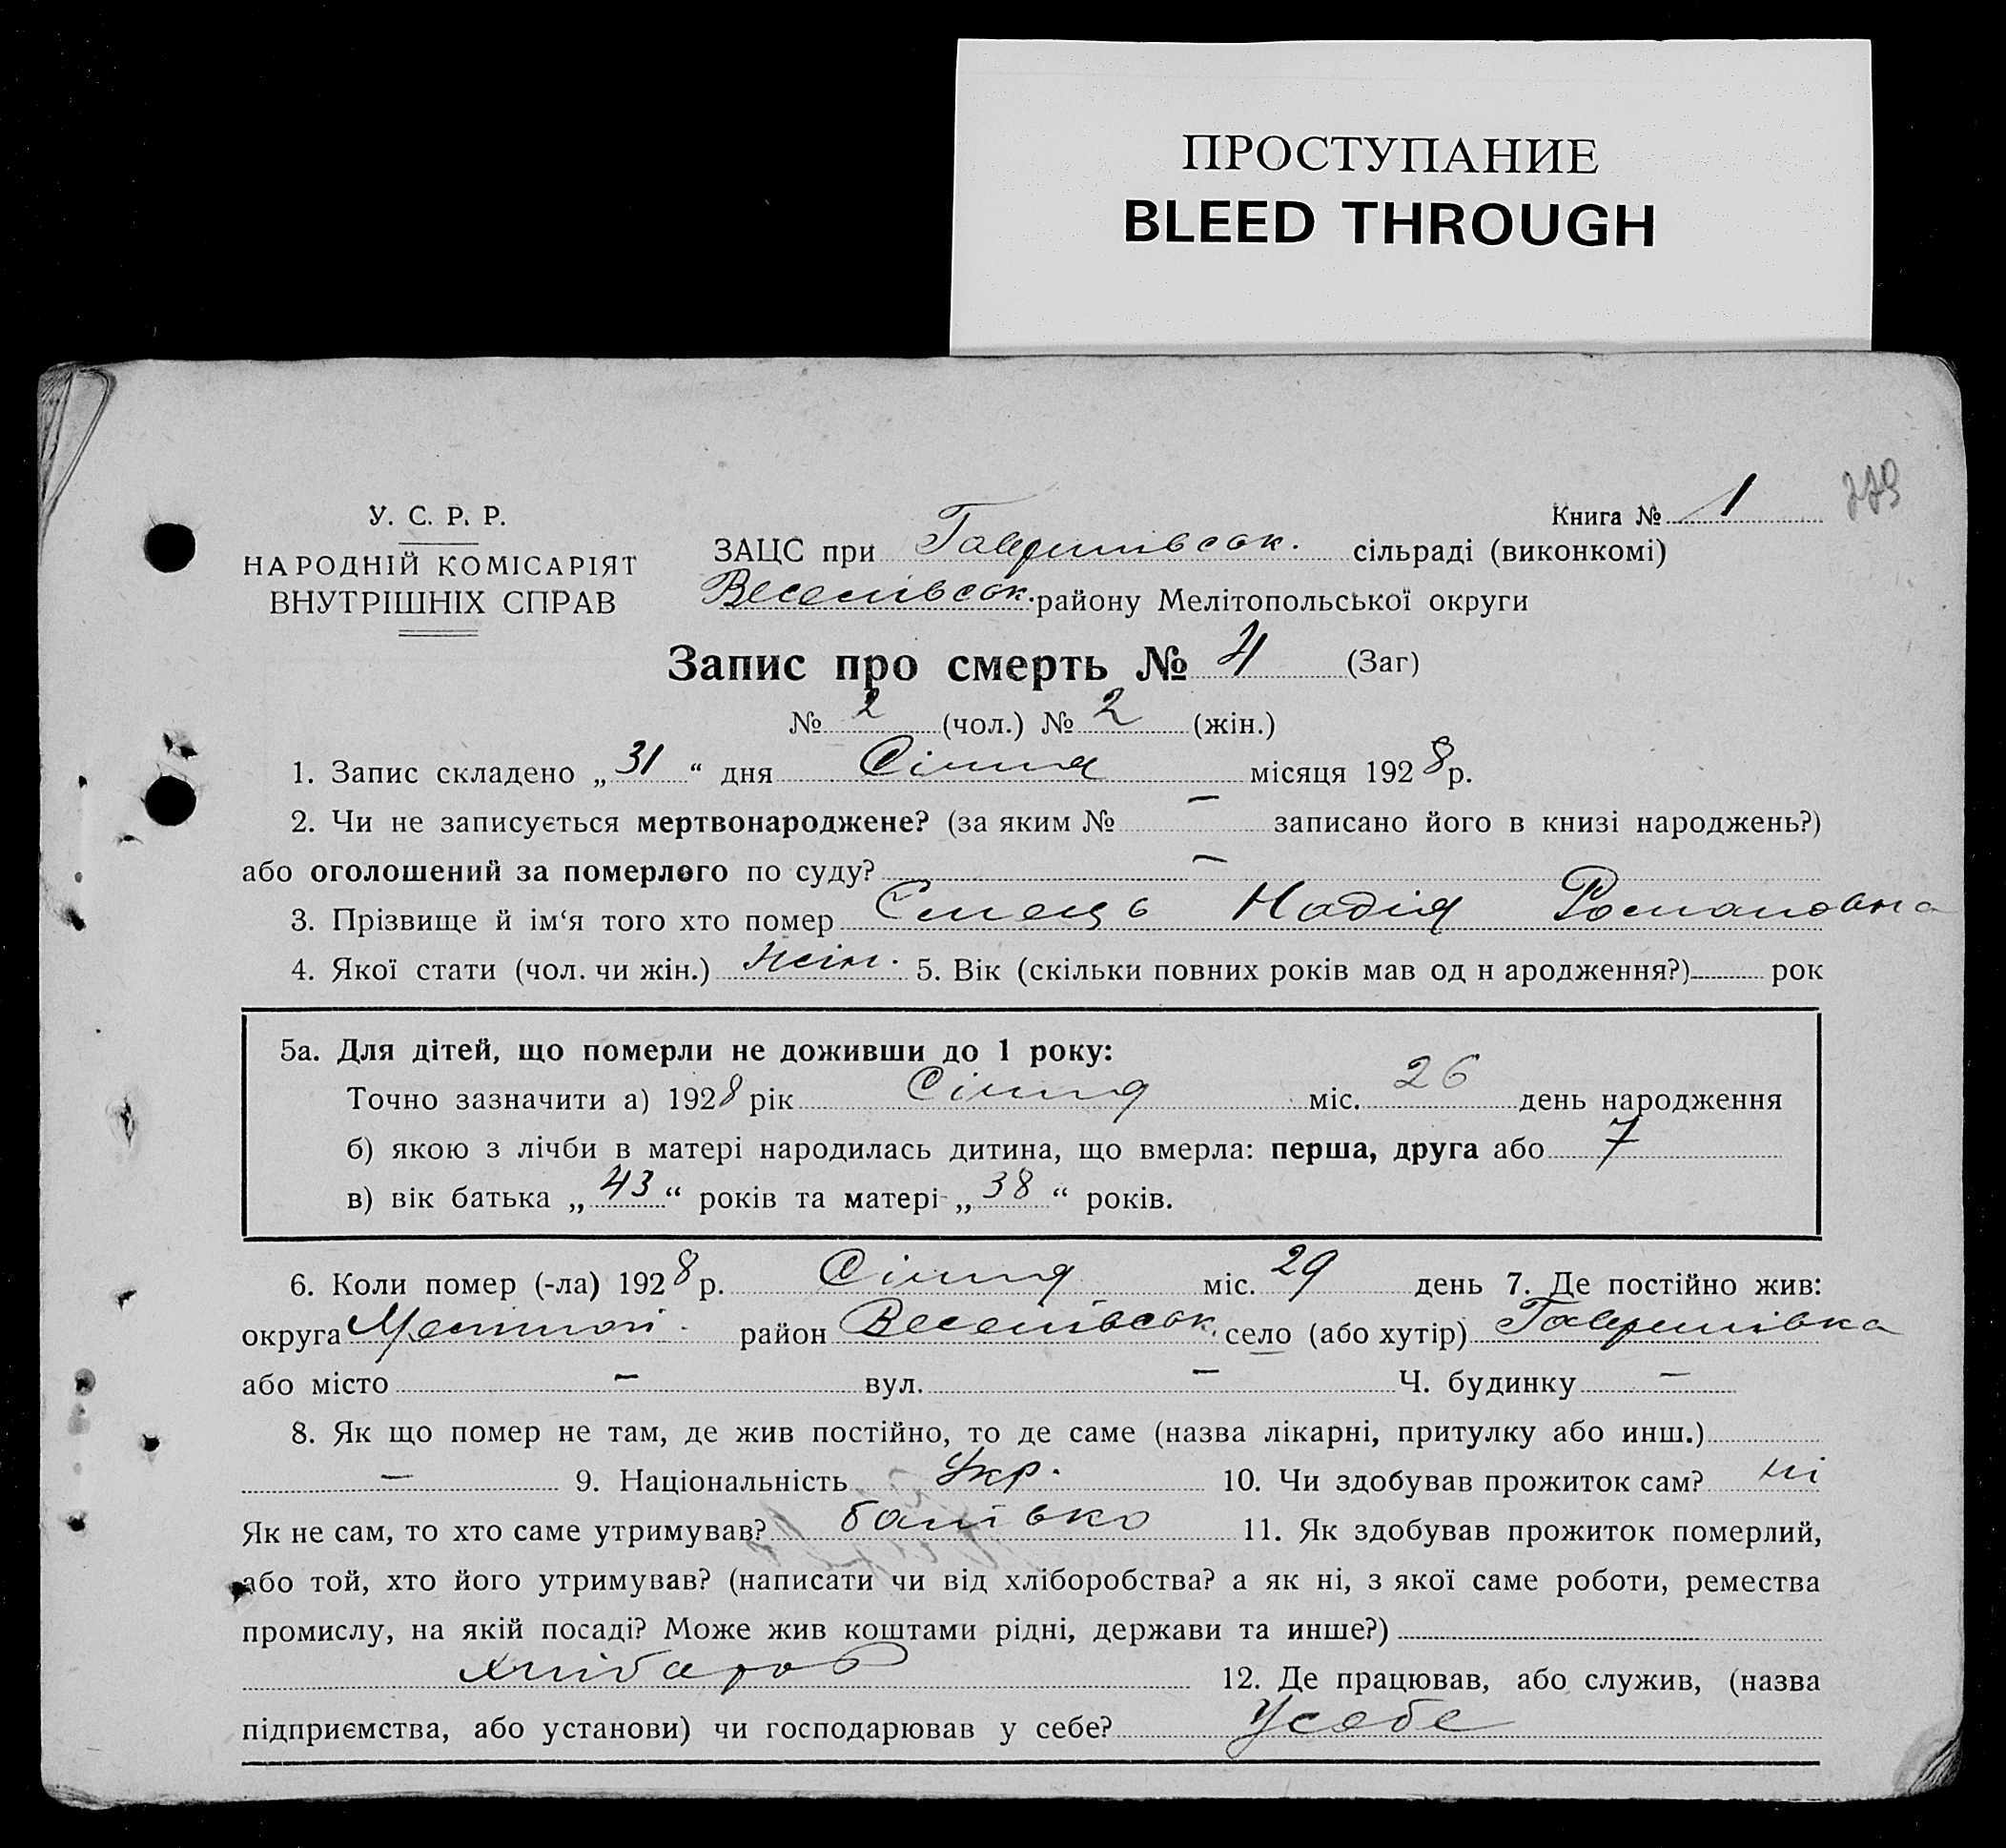 ПРОСТУПАНИЕ
BLEED THROUGH
У. С. Р. Р.
НАРОДНІЙ КОМІСАРІЯТ
ВНУТРІШНІХ СПРАВ
Книга № 1
ЗАЦС при Гаврилівськ. сільраді (виконкомі)
Веселівськ. району Мелітопольської округи
Запис про смерть № 4 (Заг)
№ 2 (чол.) № 2 (жін.)
1. Запис складено „ 31 “ дня Січня місяця 1928 р.
2. Чи не записується мертвонароджене? (за яким № — записано його в книзі народжень?)
або оголошений за померлого по суду? —
3. Прізвище й ім‘я того хто помер Надія Романовна
4. Якої стати (чол. чи жін.) жін. 5. Вік (скільки повних років мав од н ародження?) рок
5а. Для дітей, що померли не доживши до 1 року:
Точно зазначити а) 1928 рік Січня міс. 26 день народження
б) якою з лічби в матері народилась дитина, що вмерла: перша, друга або 7
в) вік батька „ 43 “ років та матері „ 38 “ років.
6. Коли помер (-ла) 1928 р. Січня міс. 29 день 7. Де постійно жив:
округа Мелітоп. район Веселівськ. село (або хутір) Гаврилівка
або місто — вул. — Ч. будинку —
8. Як що помер не там, де жив постійно, то де саме (назва лікарні, притулку або инш.)
— 9. Національність Укр. 10. Чи здобував прожиток сам? ні
Як не сам, то хто саме утримував? батько 11. Як здобував прожиток померлий,
або той, хто його утримував? (написати чи від хліборобства? а як ні, з якої саме роботи, ремества
промислу, на якій посаді? Може жив коштами рідні, держави та инше?)
хлібароб 12. Де працював, або служив, (назва
підприємства, або установи) чи господарював у себе? Усебе